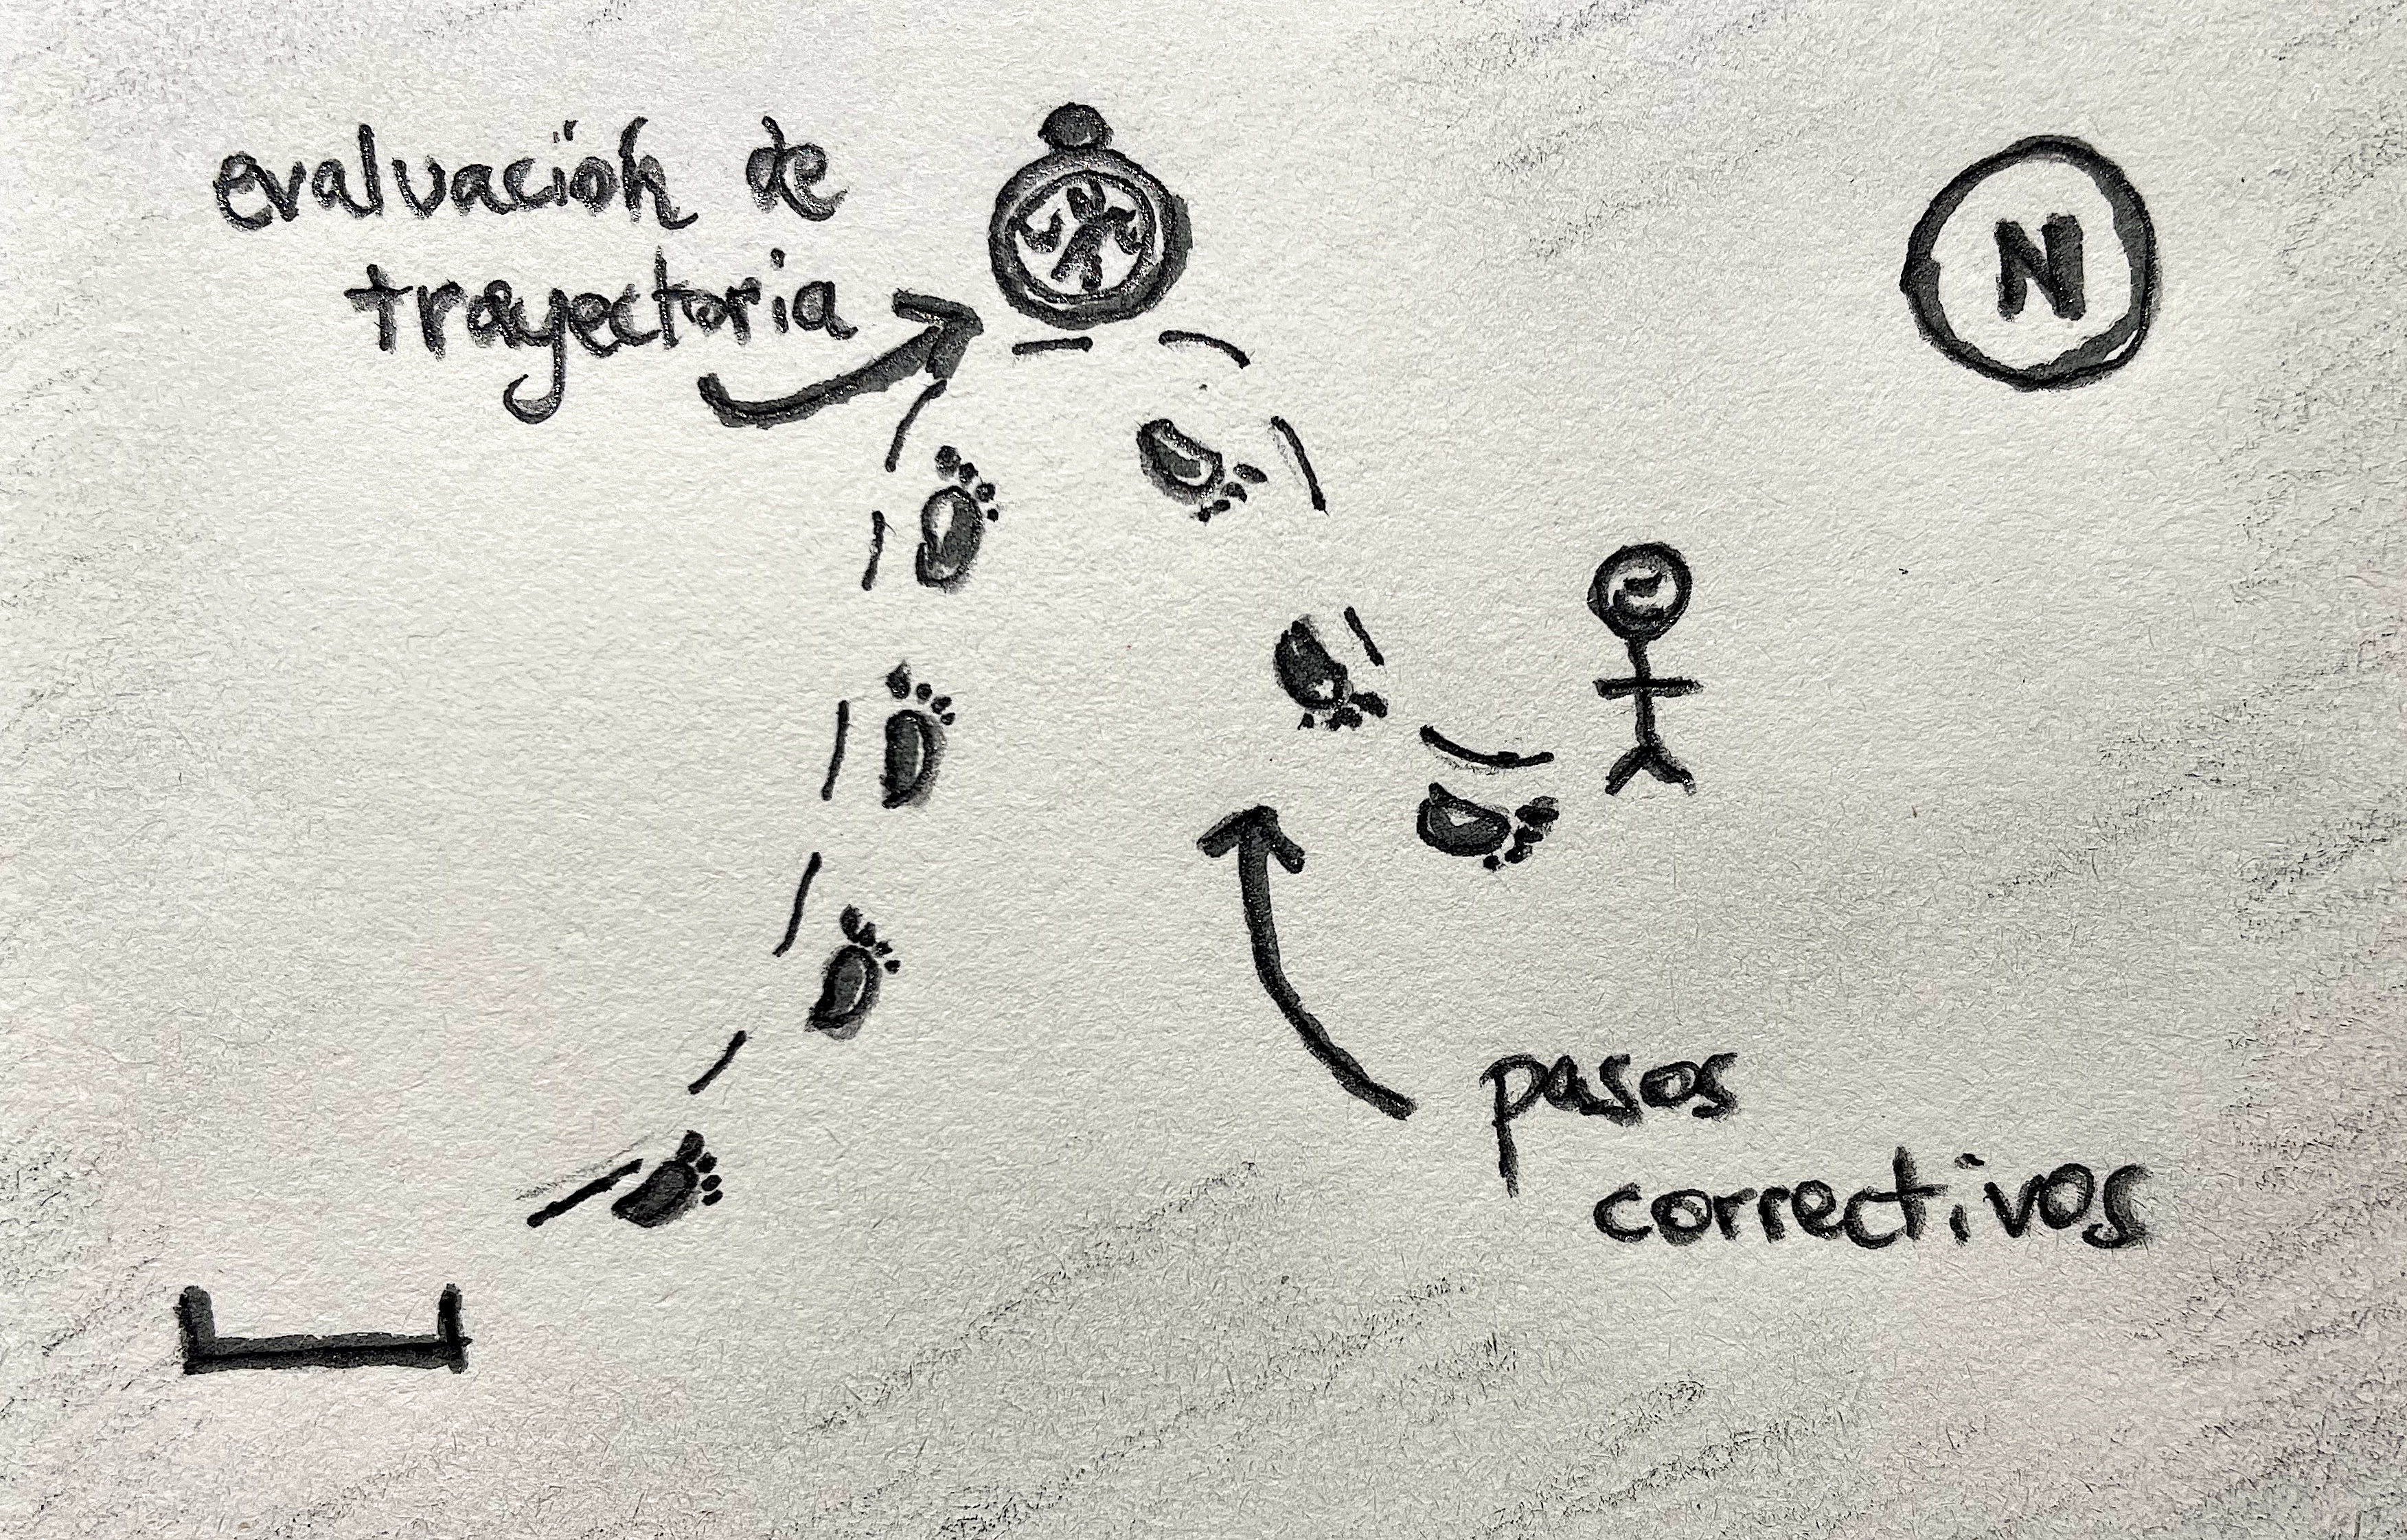 evaluación de
trayectoria
N
pasos
correctivos